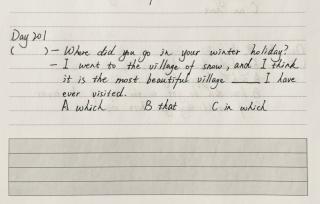 Day 201
( ) - Where did you go in your winter holiday?
- I went to the village of snow, and I think
it is the most beautiful village ____ I have
ever visited.
A which B that C in which